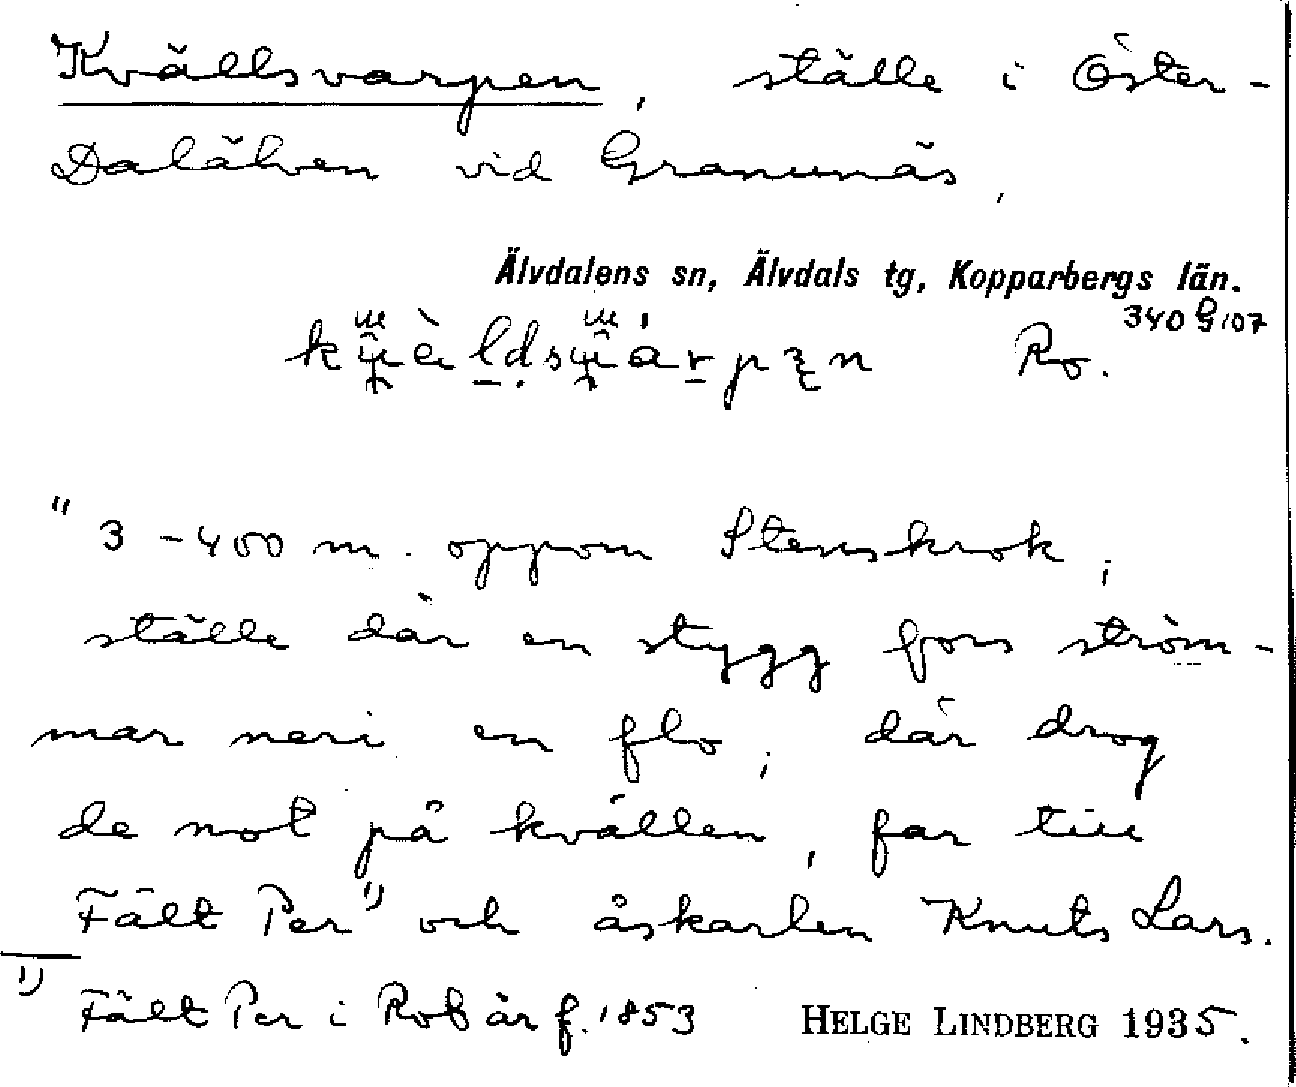 Kvällsvarpen, ställe i Öster-
Dalälven vid Granunäs,
Älvdalens sn, Älvdals tg, Kopparbergs län.
340 G 107
Ro.
" 3 - 400 m. oppom Stenskrok,
ställe där en stygg fors ström-
mar neri en flo, där drog
de not på kvällen, far till
Fält Per 1) och åskarlen Knuts Lars.
1) Fält Per i Rot är f. 1853
HELGE LINDBERG 1935.